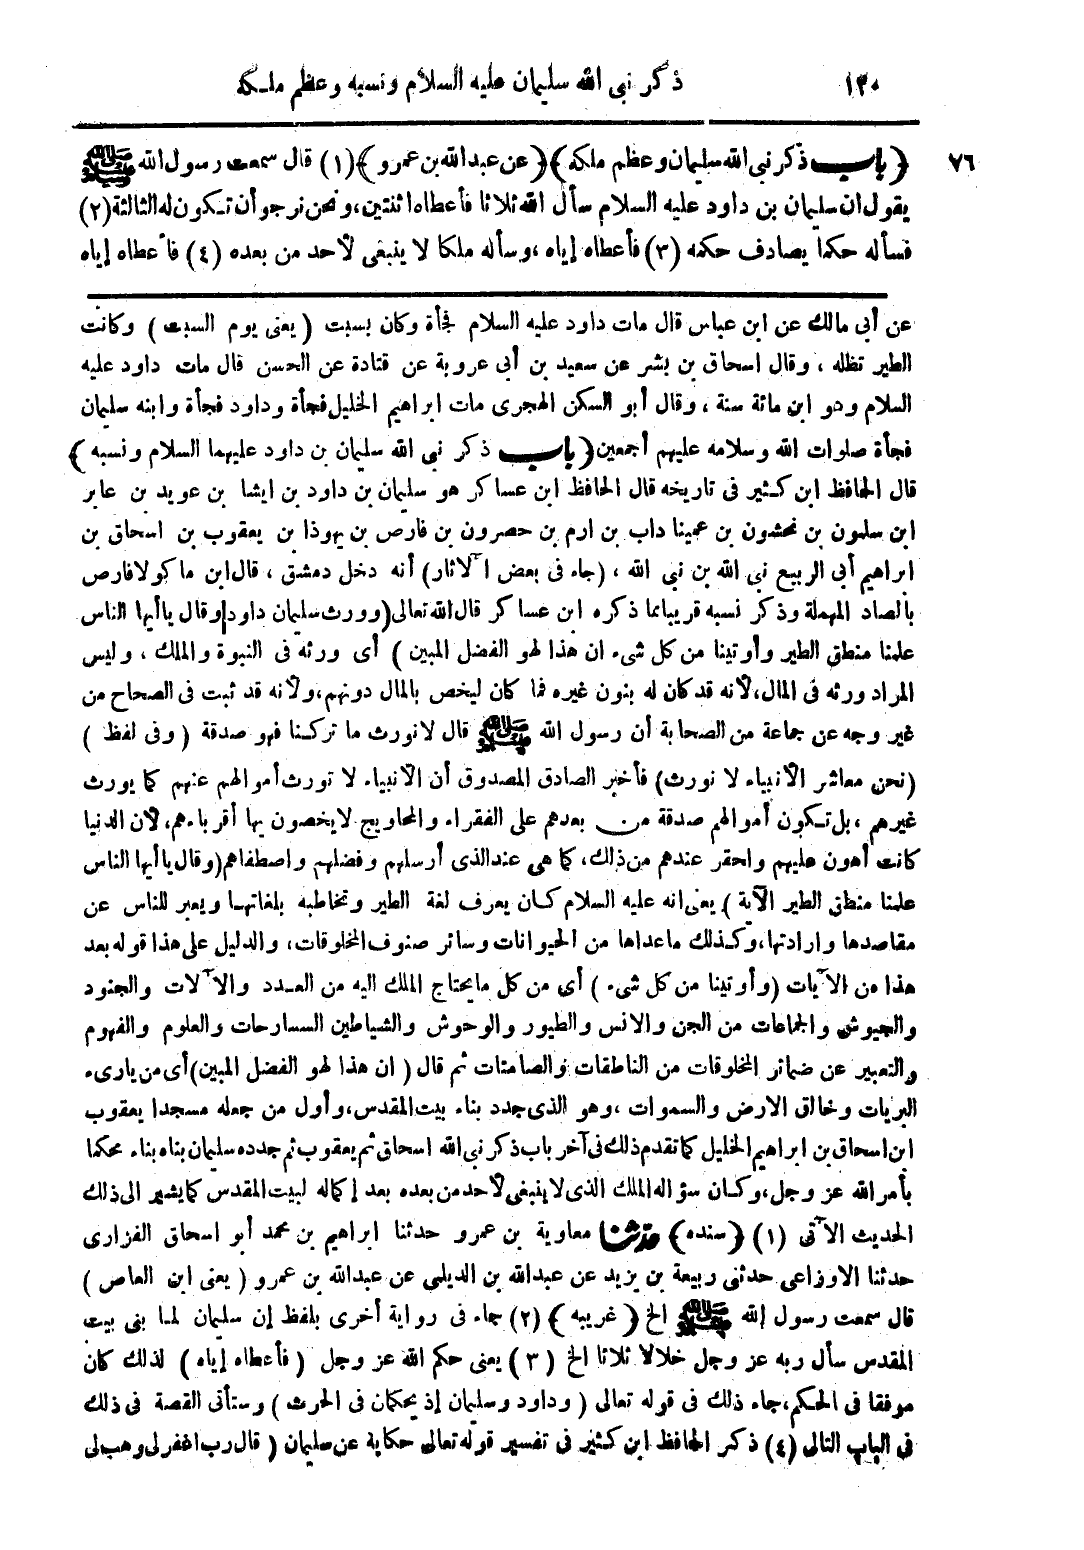 ١٣٠ ذكر نبى الله سليمان عليه السلام ونسبه وعظم ملكه
٧٦ ﴿باب ذكر نبى الله سليمان وعظم ملكه﴾ ﴿عن عبد الله بن عمرو﴾ (١) قال سمعت رسول الله ﷺ
يقول ان سليمان بن داود عليه السلام سأل الله ثلاثا فأعطاه اثنتين، ونحن نرجو أن تكون له الثالثة (٢)
فسأله حكما يصادف حكمه (٣) فأعطاه إياه، وسأله ملكا لا ينبغى لأحد من بعده (٤) فأعطاه إياه
عن أبى مالك عن ابن عباس قال مات داود عليه السلام فجأة وكان بسبت (يعنى يوم السبت) وكانت
الطير تظله ، وقال اسحاق بن بشر عن سعيد بن أبى عروبة عن قتادة عن الحسن قال مات داود عليه
السلام وهو ابن مائة سنة ، وقال أبو السكن الهجرى مات ابراهيم الخليل فجأة وداود فجأة وابنه سليمان
فجأة صلوات الله وسلامه عليهم أجمعين ﴿باب ذكر نبى الله سليمان بن داود عليهما السلام ونسبه﴾
قال الحافظ ابن كثير فى تاريخه قال الحافظ ابن عساكر هو سليمان بن داود بن ايشا بن عويد بن عابر
ابن سلمون بن نحشون بن عمينا داب بن ارم بن حصرون بن فارص بن يهوذا بن يعقوب بن اسحاق بن
ابراهيم أبى الربيع نبى الله بن نبى الله ، (جاء فى بعض الآثار) أنه دخل دمشق ، قال ابن ماكولا فارص
بالصاد المهملة وذكر نسبه قريبا مما ذكره ابن عساكر قال الله تعالى (وورث سليمان داود وقال ياأيها الناس
علمنا منطق الطير وأوتينا من كل شىء ان هذا لهو الفضل المبين ) أى ورثه فى النبوة والملك ، وليس
المراد ورثه فى المال، لأنه قد كان له بنون غيره فما كان ليخص بالمال دونهم، ولأنه قد ثبت فى الصحاح من
غير وجه عن جماعة من الصحابة أن رسول الله ﷺ قال لانورث ما تركنا فهو صدقة (وفى لفظ )
(نحن معاشر الأنبياء لا نورث) فأخبر الصادق المصدوق أن الأنبياء لا تورث أموالهم عنهم كما يورث
غيرهم ، بل تكون أموالهم صدقة من بعدهم على الفقراء والمحاويج لايخصون بها أقرباءهم، لأن الدنيا
كانت أهون عليهم واحقر عندهم من ذلك، كما هى عند الذى أرسلهم وفضلهم واصطفاهم (وقال ياأيها الناس
علمنا منطق الطير الآية ) يعنى انه عليه السلام كان يعرف لغة الطير وتخاطبه بلغاتها ويعبر للناس عن
مقاصدها وارادتها، وكذلك ماعداها من الحيوانات وسائر صنوف المخلوقات، والدليل على هذا قوله بعد
هذا من الآيات (وأوتينا من كل شىء ) أى من كل مايحتاج الملك اليه من العدد والآلات والجنود
والجيوش والجماعات من الجن والانس والطيور والوحوش والشياطين السارحات والعلوم والفهوم
والتعبير عن ضمائر المخلوقات من الناطقات والصامتات ثم قال ( ان هذا لهو الفضل المبين) أى من بارىء
البريات وخالق الارض والسموات ، وهو الذى جدد بناء بيت المقدس، وأول من جعله مسجدا يعقوب
ابن اسحاق بن ابراهيم الخليل كما تقدم ذلك فى آخر باب ذكر نبى الله اسحاق ثم يعقوب ثم جدده سليمان بناه بناء محكما
بأمر الله عز وجل، وكان سؤاله الملك الذى لاينبغى لأحد من بعده بعد إكماله لبيت المقدس كما يشير الى ذلك
الحديث الآتى (١) ﴿سنده﴾ حدثنا معاوية بن عمرو حدثنا ابراهيم بن محمد أبو اسحاق الفزارى
حدثنا الاوزاعى حدثنى ربيعة بن يزيد عن عبدالله بن الديلمى عن عبدالله بن عمرو (يعنى ابن العاص )
قال سمعت رسول الله ﷺ الخ ﴿غريبه﴾ (٢) جاء فى رواية أخرى بلفظ إن سليمان لما بنى بيت
المقدس سأل ربه عز وجل خلالا ثلاثا الخ (٣) يعنى حكم الله عز وجل (فأعطاه إياه) لذلك كان
موفقا فى الحكم، جاء ذلك فى قوله تعالى (وداود وسليمان إذ يحكمان فى الحرث ) وستأتى القصة فى ذلك
فى الباب التالى (٤) ذكر الحافظ ابن كثير فى تفسير قوله تعالى حكاية عن سليمان ( قال رب اغفر لى وهب لى